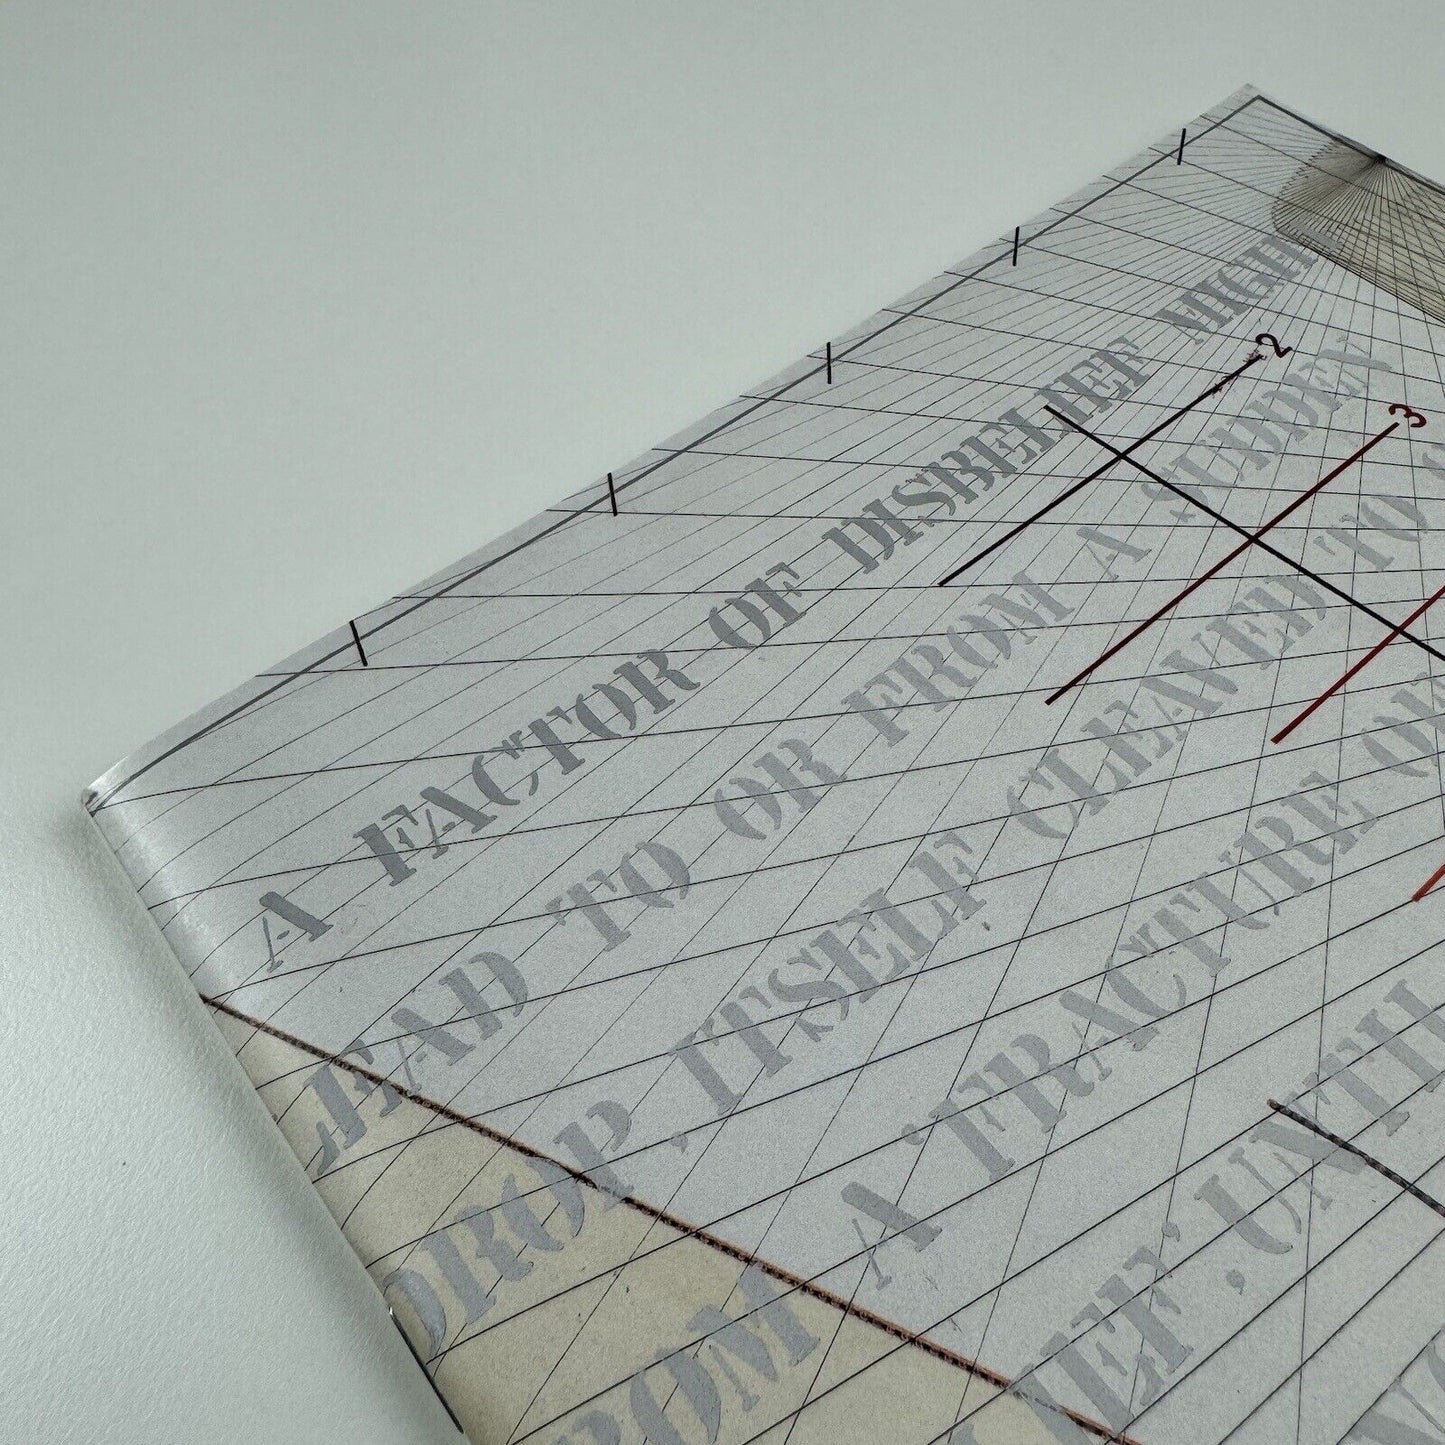 A FACTOR OF DISBELIEF MIGHT
LEAD TO OR FROM A SUDDEN
DROP, ITSELF CLEAVED TO
A 'FRACTURE OF
UNTIL
2
3